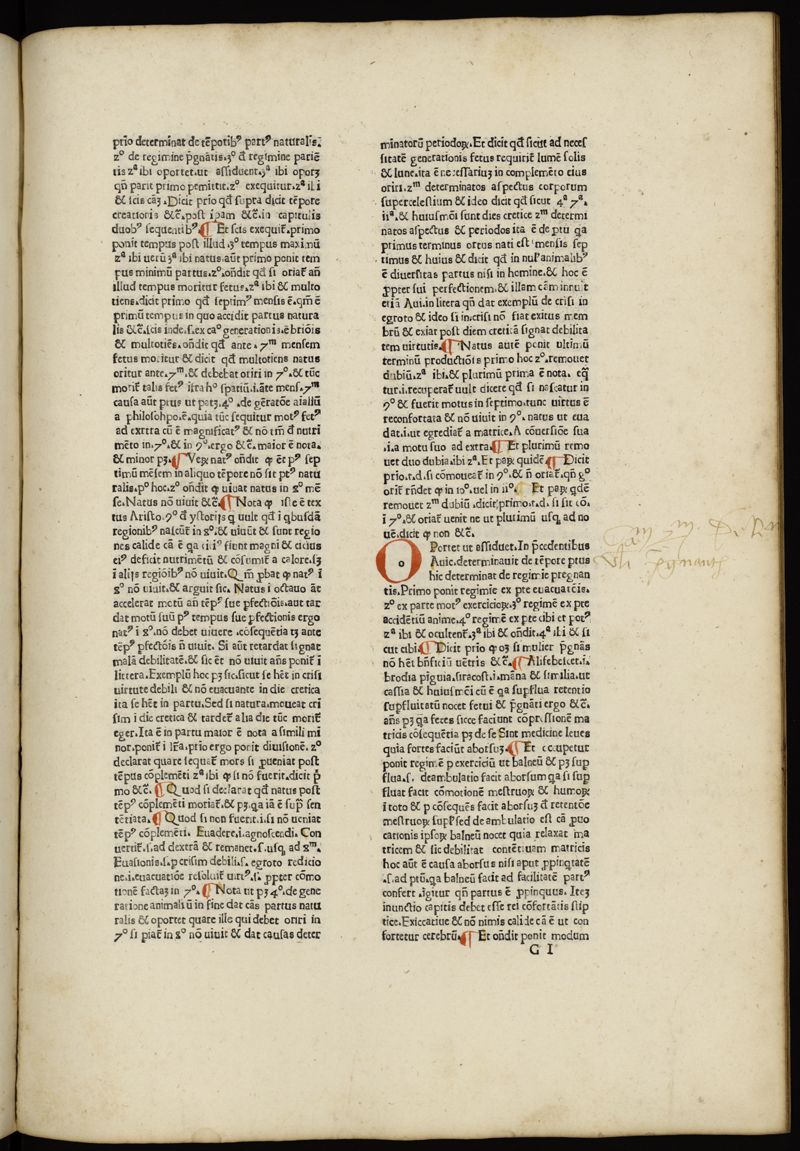 prio determinat de tēpotibꝰ partꝰ naturalis.
2º de regimine pgnātis.3º đ regimine pariē
tis 2ª ibi oportet.ut assiduent.3ª ibi oporꝫ
qñ parit primo pemittit.2º exequitur.2ª ibi
& scis cāꝫ. Dicit prio qđ supra dicit tēpore
creatiōis &c̄. post ipam &c̄. in capitulis
duobꝰ sequentibꝰ ¶ Et scis exequit̄. primo
ponit tempus post illud .3º tempus maximū
2ª ibi uerū 3ª ibi natus. aūt primo ponit tem
pus minimū partus.2º. oñdit qđ si oriat̄ añ
illud tempus moritur fetus.2ª ibi & multo
tiens. dicit primo qđ septimꝰ mensis ē. qm̄ ē
primū tempus in quo accidit partus natura
lis &c̄. scis inde. s. ex caº generationis. ēbriōis
& multotiēs. oñdit qđ ante .7ᵐ mensem
fetus moritur & dicit qđ multotiens natus
oritur ante .7ᵐ. & debebat oriri in 7º. & tūc
morit̄ talis fetꝰ ifra hº spatiū. i. āte mens. 7ᵐ
causa aūt ptus ut patꝫ. 4º . de gēratōe aialiū
a philosohpo. ē. quia tūc sequitur motꝰ fetꝰ
ad extra cū ē magnificatꝰ & nō tm̄ đ nutri
mēto in. 7º. & in 9º. ergo &c̄. maior ē nota.
& minor pꝫ. ¶ Veꝝ natꝰ oñdit ꝙ ēt pꝰ sep
timū mēsem in aliquo tēpore nō sit ptꝰ natu
ralis. pº hoc. 2º oñdit ꝙ uiuat natus in 8º mē
se. Natus nō uiuit &c̄. ¶ Nota ꝙ iste ē tex
tus Aristo. 9º đ ystorijs q uult qđ i qbusdā
regionibꝰ nascūt̄ in 8º. & uiuūt & sunt regio
nes calide cā ē qa citiꝰ fiunt magni & citius
eiꝰ deficit nutrimētū & cōsumit̄ a calore. sꝫ
ī alijs regiōibꝰ nō uiuit. Qm̄ pbat ꝙ natꝰ ī
8º nō uiuit. & arguit sic. Natus i octauo āt
accelerat motū añ tēpꝰ sue pfectiōis. aut tar
dat motū suū pꝰ tempus sue pfectionis ergo
natꝰ i 8º. nō debet uiuere . cōsequētia tꝫ ante
tēpꝰ pfectōis ñ uiuit. Si aūt retardat signat
malā debilitatē. & sic ēt nō uiuit añs ponit̄ ī
littera. Exemplū hoc pꝫ sic. sicut se hēt in crisi
uirtute debili & nō euacuante in die cretica
ita se hēt in partu. Sed si natura. moueat cri
sim i die cretica & tardet̄ alia die tūc morit̄
eger. Ita ē in partu maior ē nota a simili mi
nor. ponit̄ i lr̄a. prio ergo ponit diuisionē. 2º
declarat quare sequat̄ mors si pueniat post
tēpus cōplemēti 2ª ibi ꝙ si nō fuerit. dicit p̄
mo &c̄. ¶ Quod si declarat qđ natus post
tēpꝰ cōplemēti moriat̄. & pꝫ. qa iā ē supꝰ sen
tētiata. ¶ Quod si non fuerit. i. si nō ueniat
tēpꝰ cōplemēti. Euadere. i. agnoscendi. Con
uertit̄. s. ad dextrā & remanet. s. usqꝫ ad 8ᵐ.
Euasionis. s. p crisim debili. s. egroto redicio
ne. i. euacuatiōe resoluit̄ uirtꝰ. s. ꝓpter cōmo
tionē factaꝫ in 7º. ¶ Nota ut pꝫ 4º. de gene
ratione animaliū in fine dat cās partus natu
ralis & oportet quare ille qui debet oriri in
7º si piat̄ in 8º nō uiuit & dat causas deter
minatorū periodoꝝ. Et dicit qđ sicut ad neces
sitatē generationis fetus requirit̄ lumē solis
& lune. ita ē necessariuꝫ in complemēto eius
oriri. 2ᵐ determinatos aspectus corporum
supercelestium & ideo dicit qđ sicut 4ª 7ª.
iiª. & huiusmōi sunt dies cretice 2ᵐ determi
natos aspectus & periodos ita ē de ptu qa
primus terminus ortus nati est mensis sep
timus & huius & dicit qđ in nulꝰ animalibꝰ
ē diuersitas partus nisi in homine. & hoc ē
ꝓpter sui perfectionem. & illam cām innuit
etiā Aui. in litera qñ dat exemplū de crisi in
egroto & ideo si in crisi nō fiat exitus mem
brū & exiat post diem creticā signat debilita
tem uirtutis. ¶ Natus autē ponit ultimū
terminū productiōis primo hoc 2º. remouet
dubiū. 2ª ibi. & plurimū prima ē nota. eq
tur. i. recuperat̄ uult dicere qđ si nascatur in
9º & fuerit motus in septimo. tunc uirtus ē
reconfortata & nō uiuit in 9º. natus ut eua
dat. i. ut egrediat̄ a matrice. A cōuersiōe sua
. i. a motu suo ad extra. ¶ Et plurimū remo
uet duo dubia. ibi 2ª. Et paꝝ quidē ¶ Dicit
prio. t. d. si cōmoueat̄ in 9º. & ñ oriat̄. qñ gº
orit̄ rñdet ꝙ in 10º. uel in iiº. Et paꝝ qdē
remouet 2ᵐ dubiū . dicit primo. t. d. si sit cō.
ī 7º. & oriat̄ uenit ne ut plutimū usqꝫ ad no
uē. dicit ꝙ non &c̄.
Oportet ut assiduet. In p̄cedentibus
Auic. determinauit de tēpore ptus
hic determinat de regimie pregnan
tis. Primo ponit regimie ex pte euacuatōis.
2º ex parte motꝰ exercicioꝝ. 3º regimē ex pte
accidētiū anime. 4º regimē ex pte cibi et potꝰ
2ª ibi & ocultent̄. 3ª ibi & oñdit. 4ª ibi & si
cut cibi ¶ Dicit prio ꝙ oꝫ si mulier p̄gnās
nō hēt bn̄ficiū uētris &c̄. ¶ Alsfebeket. i.
brodia piguia. siracost. i. māna & similia. ut
cassia & huiusmēi cū ē qa supflua retentio
supfluitatū nocet fetui & p̄gnāti ergo &c̄.
añs pꝫ qa feces sicce faciunt cōpressionē ma
tricis cōsequētia pꝫ de se Sint medicine leues
quia fortes faciūt aborsuꝫ. ¶ Et occupetur
ponit regimē p exerciciū ut balneū & pꝫ sup
flua. s. deambulatio facit aborsum qa si sup
fluat facit cōmotionē mestruoꝝ & humoꝝ
i toto & p cōsequēs facit aborsuꝫ đ retentōe
mestruoꝝ supꝰ sed deambulatio est cā ꝓuo
cationis ipsoꝝ balneū nocet quia relaxat ma
tricem & sic debilitat contētiuam matricis
hoc aūt ē causa aborsus nisi aput ꝓpinqtatē
. s. ad ptū. qa balneū facit ad facilitatē partꝰ
confert . igitur qñ partus ē ꝓpinquus. Iteꝫ
inunctio capitis debet esse rei cōfortātis stip
tice. Exiccatiue & nō nimis calide cā ē ut con
fortetur cerebrū. ¶ Et oñdit ponit modum
G I